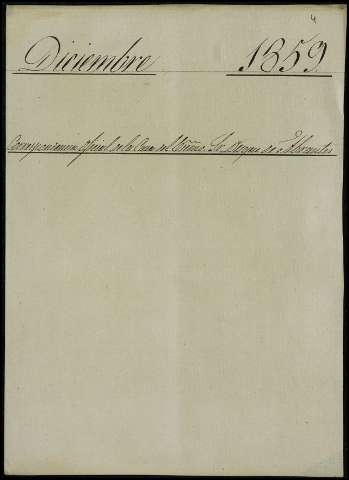 4
Diciembre 1859.
Correspondencia oficial de la Casa del Excmo. Sr. Duque de Abrantes